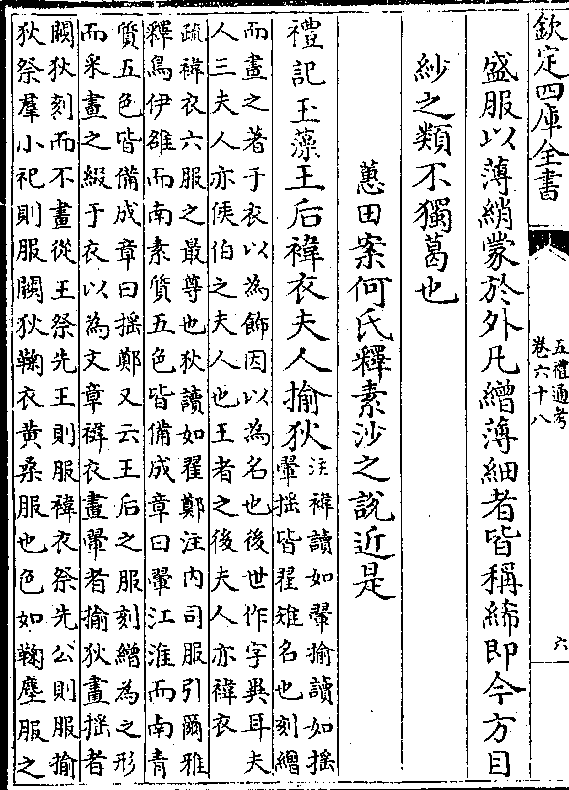 欽定四庫全書
五禮通考
卷六十八
六
盛服以薄綃蒙於外凡繒薄細者皆稱絺即今方目
紗之類不獨葛也
蕙田案何氏釋素沙之說近是
禮記玉藻王后褘衣夫人揄狄
注褘讀如翬揄讀如摇
翬摇皆翟雉名也刻繒
而畫之著于衣以為飾因以為名也後世作字異耳夫
人三夫人亦侯伯之夫人也王者之後夫人亦褘衣
疏褘衣六服之最尊也狄讀如翟鄭注内司服引爾雅
釋鳥伊雒而南素質五色皆備成章曰翬江淮而南青
質五色皆備成章曰摇鄭又云王后之服刻繒為之形
而采畫之綴于衣以為文章褘衣畫翬者揄狄畫摇者
闕狄刻而不畫從王祭先王則服褘衣祭先公則服揄
狄祭羣小祀則服闕狄鞠衣黄桑服也色如鞠塵服之